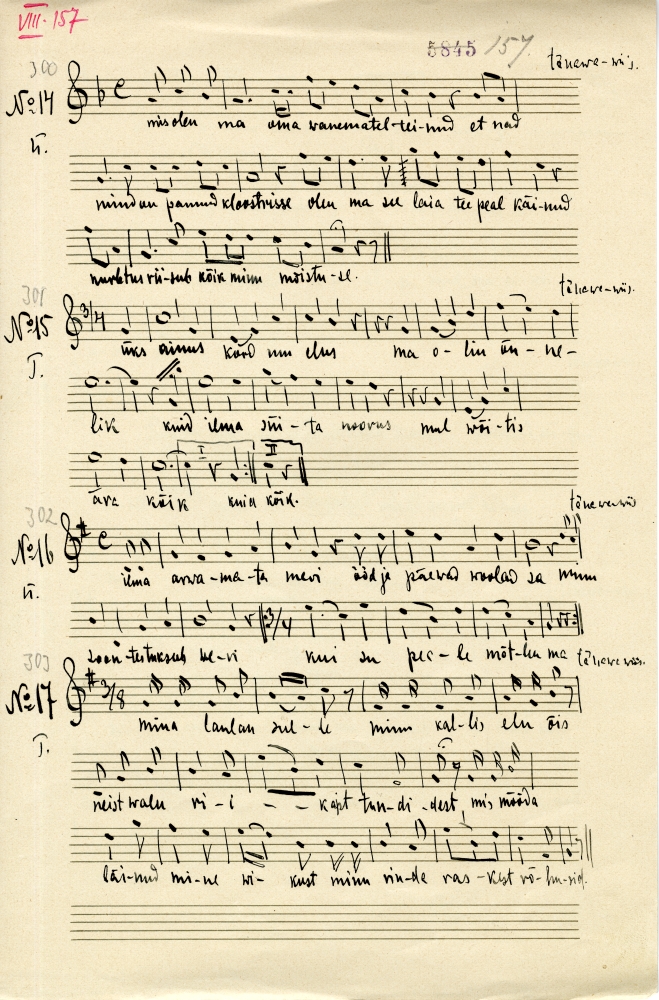 VIII. 157
5845 157.
300 tänawa-wiis.
No 14
mis olen ma oma wanematel-tei-nud et nad
n.
mind on pannud kloostrisse olen ma see laia tee peal käi-nud
murtus rii-sub kõik minu mõistu-se.
301 tänawa-wiis.
No 15
üks ainus kord mu elus ma o-lin õn-ne-
T.
lik kuid ilma süü-ta noorus mul wõi-tis
I II
ära kõik kuid kõik.
302 tänawa-wiis
No 16
ilma arwa-ma-ta meri ööd ja päewad woolad sa minu
n.
soon-tes tuksub we-ri kui su pea-le mõt-len ma
303 tänawa wiis.
No 17
mina laulan sul-le minu kal-lis elu õis
T.
neist walu vi-i - - kapt tun-di-dest, mis mööda
läi-nud mi-ne wi- kust minu rin-da ras-kest rõ-hu-sid.